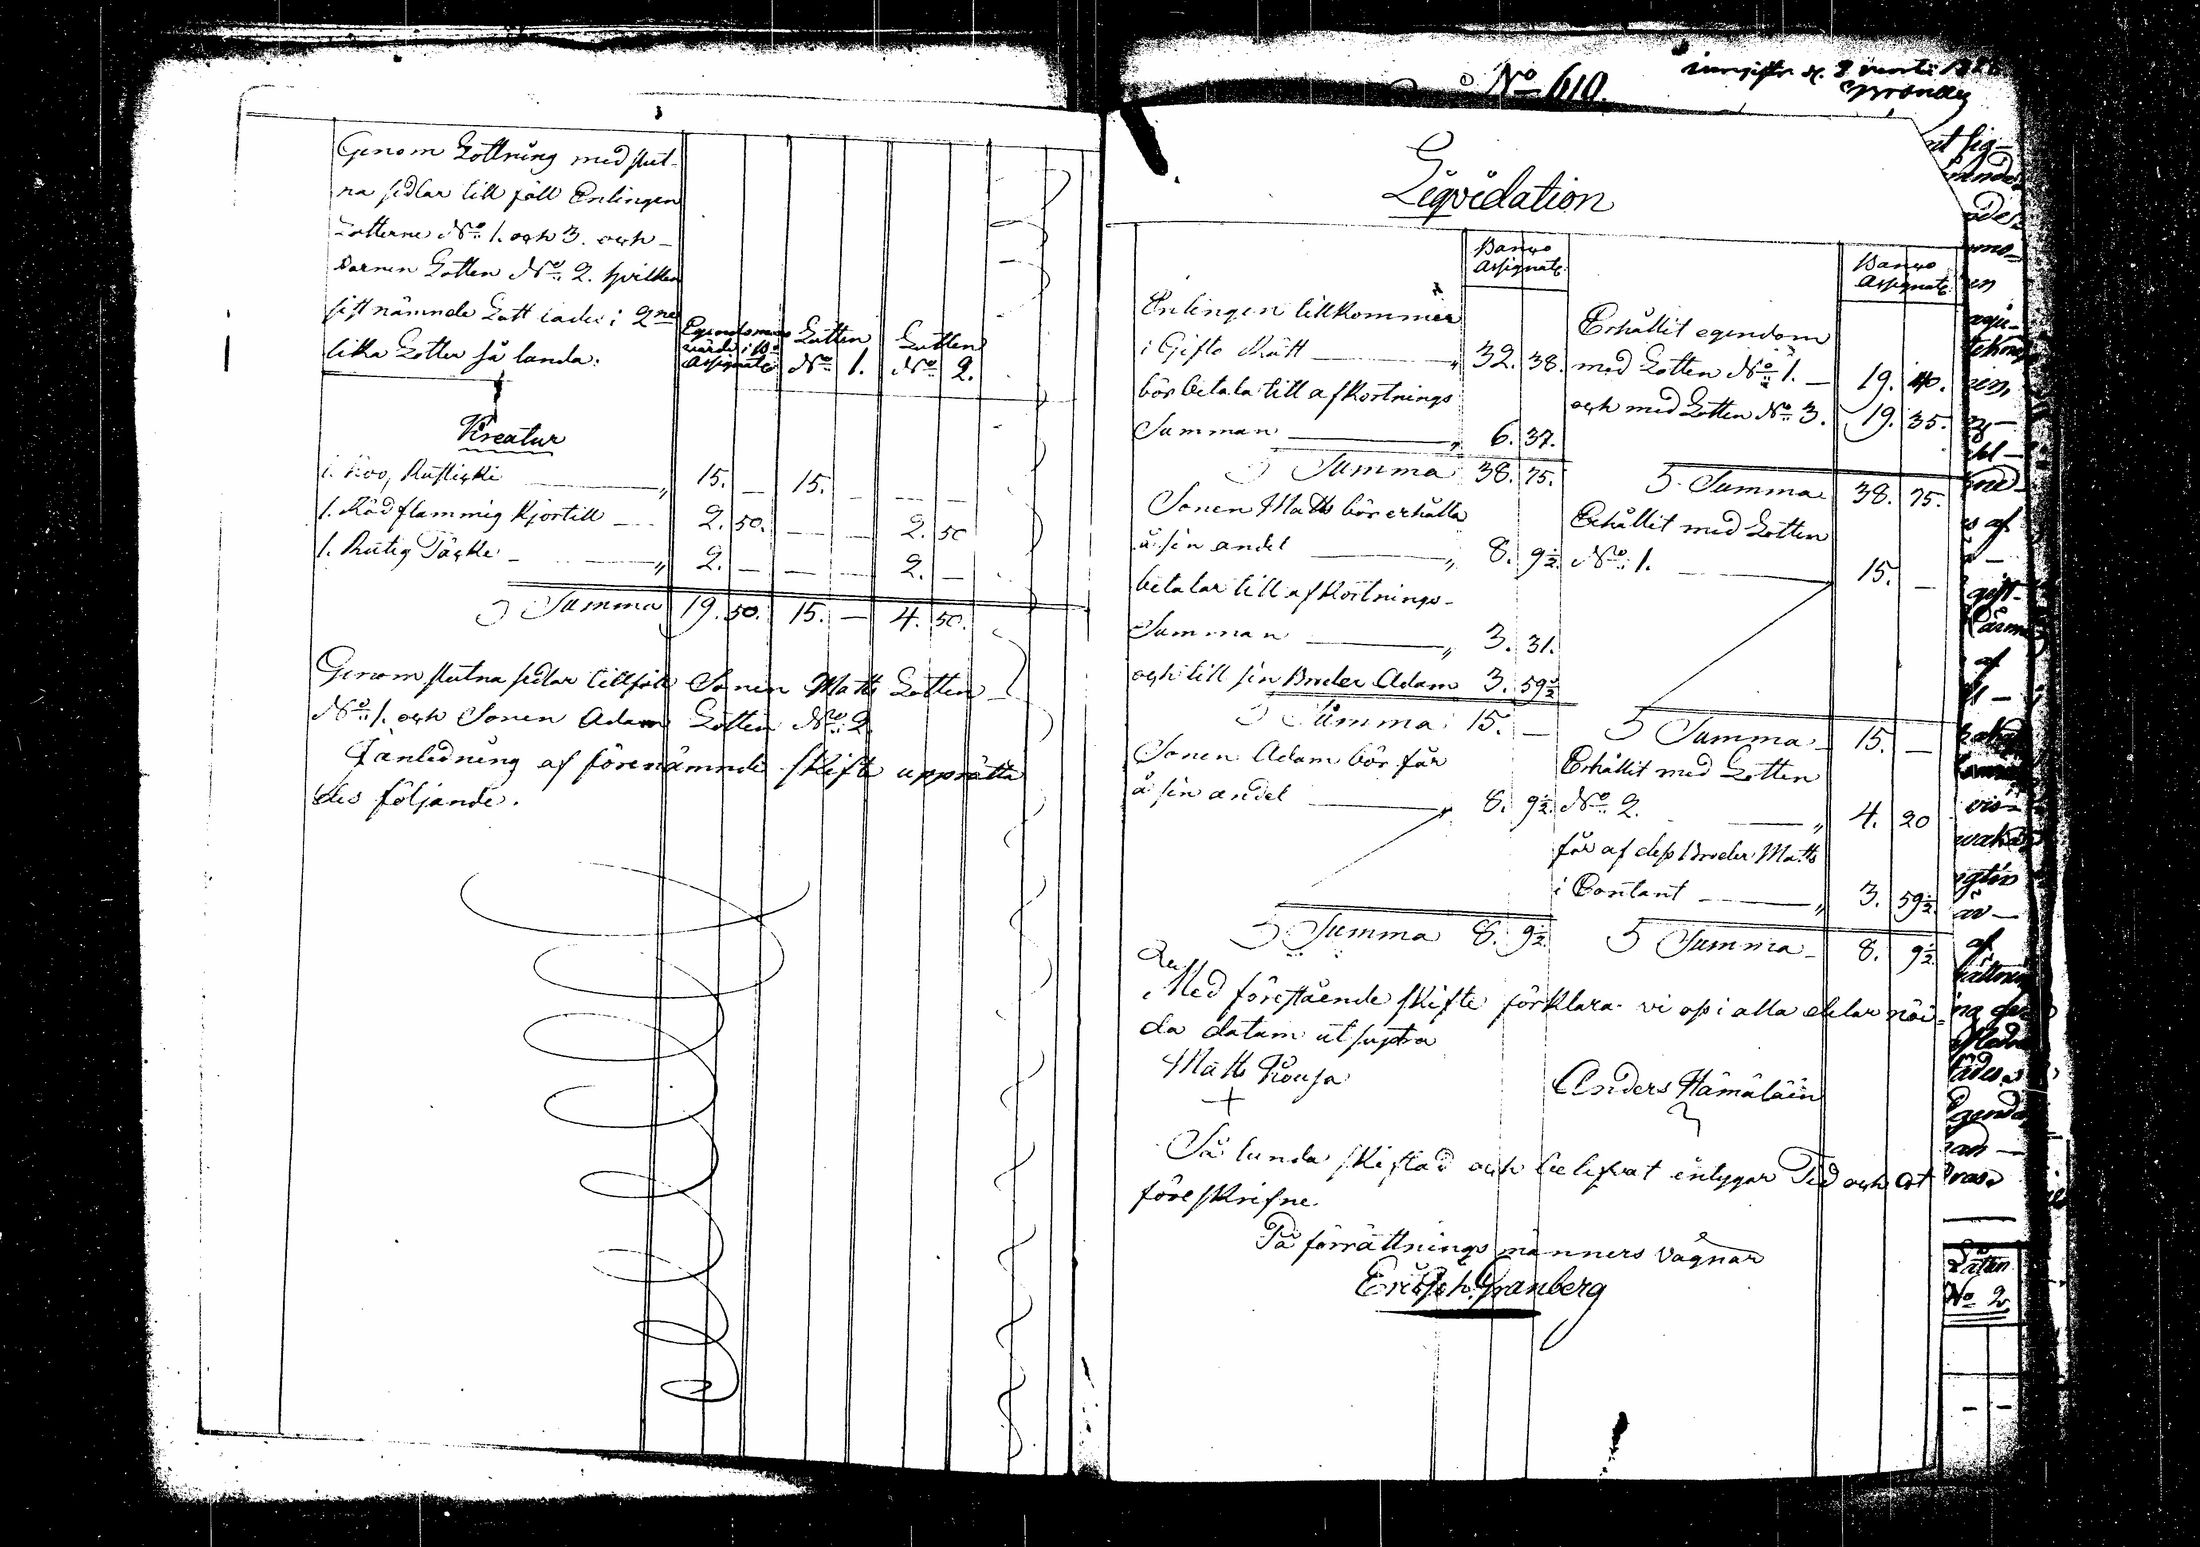 Genom Lottning med slut-
na sedlar till föll Enlingen
Lotterne No. 1. och 3. och
barnen Lotten No. 2. hvilken
sist nämnde Lott lades i 2ne
lika Lotter så lunda:
Egendomens värde i Bo Assignatr
Lotten No 1.
Lotten No 2.
Kreatur
1. Koo, Rustickki 15. – 15. – – –
1. Rödflammig Kjortell 2. 50. – – 2. 50
1. Rutig Täcke 2. – – – 2. –
Summa 19. 50. 15. – 4. 50.
Genom slutna sedlar tillföll Sonen Matts Lotten
No. 1. och Sonen Adam Lotten No. 2.
I anledning af förenämnde skifte upprätta
des följande.
No 610.
Liqvidation
Banco Assignatr.
Banco Assignatr.
Enlingen tillkommer
i Gifto Rätt 32. 38.
bör betala till afkortnings
Summan 6. 37.
Summa 38. 75.
Sonen Matts bör erhålla
å sin andel 8. 9½.
betalar till afkortnings-
Summan 3. 31.
och till sin Broder Adam 3. 59½
Summa 15. –
Sonen Adam bör får
å sin andel 8. 9½.
Summa 8. 9½
Erhållit egendom
med Lotten No. 1. – 19. 40.
och med Lotten No. 3. 19. 35.
Summa 38. 75.
Erhållit med Lotten
No. 1. 15. –
Summa 15. –
Erhållit med Lotten
No. 2. 4. 20
får af dess Broder Matts
i Contant 3. 59½
Summa 8. 9½
Med förestående skifte förklara vi oss i alla delar nöi-
da datum ut supra
Matts
Anders Hämäläin
Så lunda skiftad och intygar Tid och Ort
föreskrifne.
På förrättnings männers vägnar
Eric Joh. Granberg
Lotten
No 2